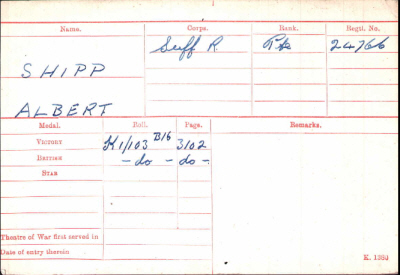 Name. Corps. Rank. Regtl. No.
SHIPP Suff R. Pte 24766
ALBERT
Medal. Roll. Page. Remarks.
VICTORY K1/103 B16 3102
BRITISH - do - do -
STAR
Theatre of War first served in
Date of entry therein
K. 1380